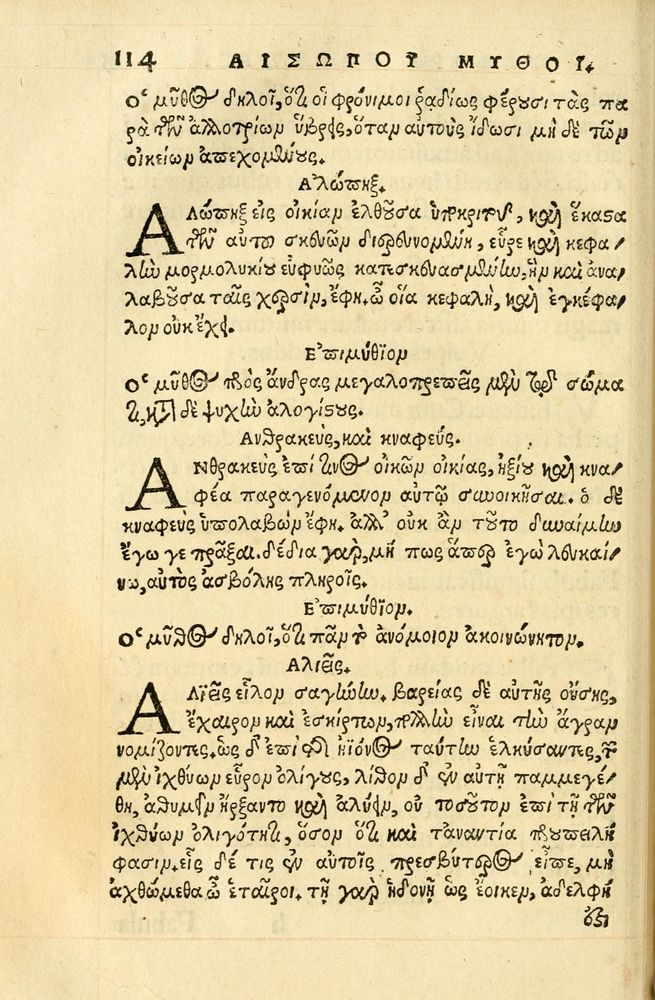 114 ΑΙΣΩΠΟΥ ΜΥΘΟΙ.
Ὁ μῦθος δηλοῖ, ὅτι οἱ φρόνιμοι ῥαδίως φέρουσι τὰς πα
ρὰ τῶν ἀλλοτρίων ὕβρεις, ὅταν αὐτοὺς ἴδωσι μὴ δὲ τῶν
οἰκείων ἀπεχομένους.
Ἀλώπηξ.
ΑΛώπηξ εἰς οἰκίαν ἐλθοῦσα ὑποκριτοῦ, καὶ ἕκαστα
τῶν αὐτοῦ σκευῶν διερευνομένη, εὗρε καὶ κεφα/
λὴν μορμολυκίου εὐφυῶς κατεσκευασμένην, ἣν καὶ ἀνα/
λαβοῦσα ταῖς χερσὶν, ἔφη. ὦ οἵα κεφαλὴ, καὶ ἐγκέφα/
λον οὐκ ἔχει.
Ἐπιμύθιον
Ὁ μῦθος πρὸς ἄνδρας μεγαλοπρεπεῖς μὲν τῷ σώμα
τι, κατὰ δὲ ψυχὴν ἀλογίστους.
Ἀνθρακεὺς, καὶ κναφεύς.
ΑΝθρακεὺς ἐπί τινος οἰκῶν οἰκίας, ἠξίου καὶ κνα/
φέα παραγενόμενον αὐτῷ συνοικῆσαι. ὁ δὲ
κναφεὺς ὑπολαβὼν ἔφη. ἀλλ' οὐκ ἂν τοῦτο δυναίμην
ἔγωγε πρᾶξαι. δέδια γὰρ, μή πως ἅπερ ἐγὼ λευκαί/
νω, αὐτὸς ἀσβόλης πληροῖς.
Ἐπιμύθιον.
Ὁ μῦθος δηλοῖ, ὅτι πᾶν τὸ ἀνόμοιον ἀκοινώνητον.
Ἁλιεῖς.
ΑΛιεῖς εἷλον σαγήνην. βαρείας δὲ αὐτῆς οὔσης,
ἔχαιρον καὶ ἐσκίρτων, πολλὴν εἶναι τὴν ἄγραν
νομίζοντες. ὡς δ' ἐπὶ τῆς ἠϊόνος ταύτην ἑλκύσαντες, τῶν
μὲν ἰχθύων εὗρον ὀλίγους, λίθον δ' ἐν αὐτῇ παμμεγέ/
θη, ἀθυμεῖν ἤρξαντο καὶ ἀλύειν, οὐ τοσοῦτον ἐπὶ τῇ τῶν
ἰχθύων ὀλιγότητι, ὅσον ὅτι καὶ τἀναντία προυπειλή
φασιν. εἷς δέ τις ἐν αὐτοῖς πρεσβύτερος εἶπε, μὴ
ἀχθώμεθα ὦ ἑταῖροι. τῇ γὰρ ἡδονῇ ὡς ἔοικεν, ἀδελφή
ἐστι